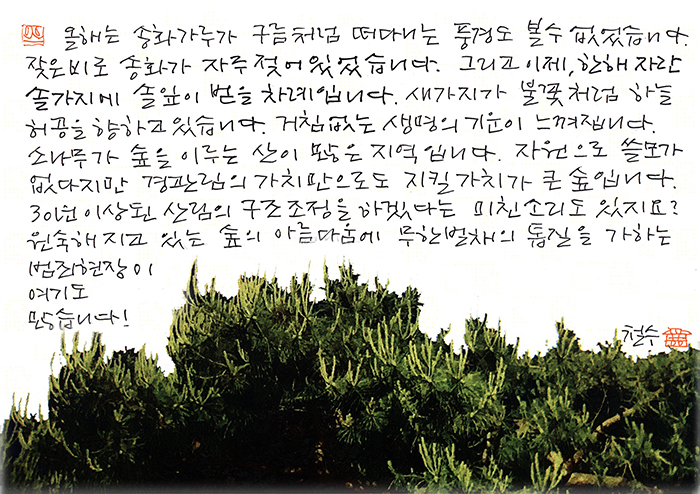 올해는 송화가루가 구름처럼 떠다니는 풍경도 볼수 없었습니다.
잦은비로 송화가 자주 젖어있었습니다. 그리고 이제, 한해 자란
솔가지에 솔잎이 벋을 차례입니다. 새가지가 불꽃처럼 하늘
허공을 향하고 있습니다. 거침없는 생명의 기운이 느껴집니다.
소나무가 숲을 이루는 산이 많은 지역입니다. 자원으로 쓸모가
없다지만 경관림의 가치만으로도 지킬가치가 큰 숲입니다.
30년이상된 산림의 구조조정을 하겠다는 미친소리도 있지요?
원숙해지고 있는 숲의 아름다움에 무한벌채의 톱질을 가하는
범죄현장이
여기도
많습니다!
철수